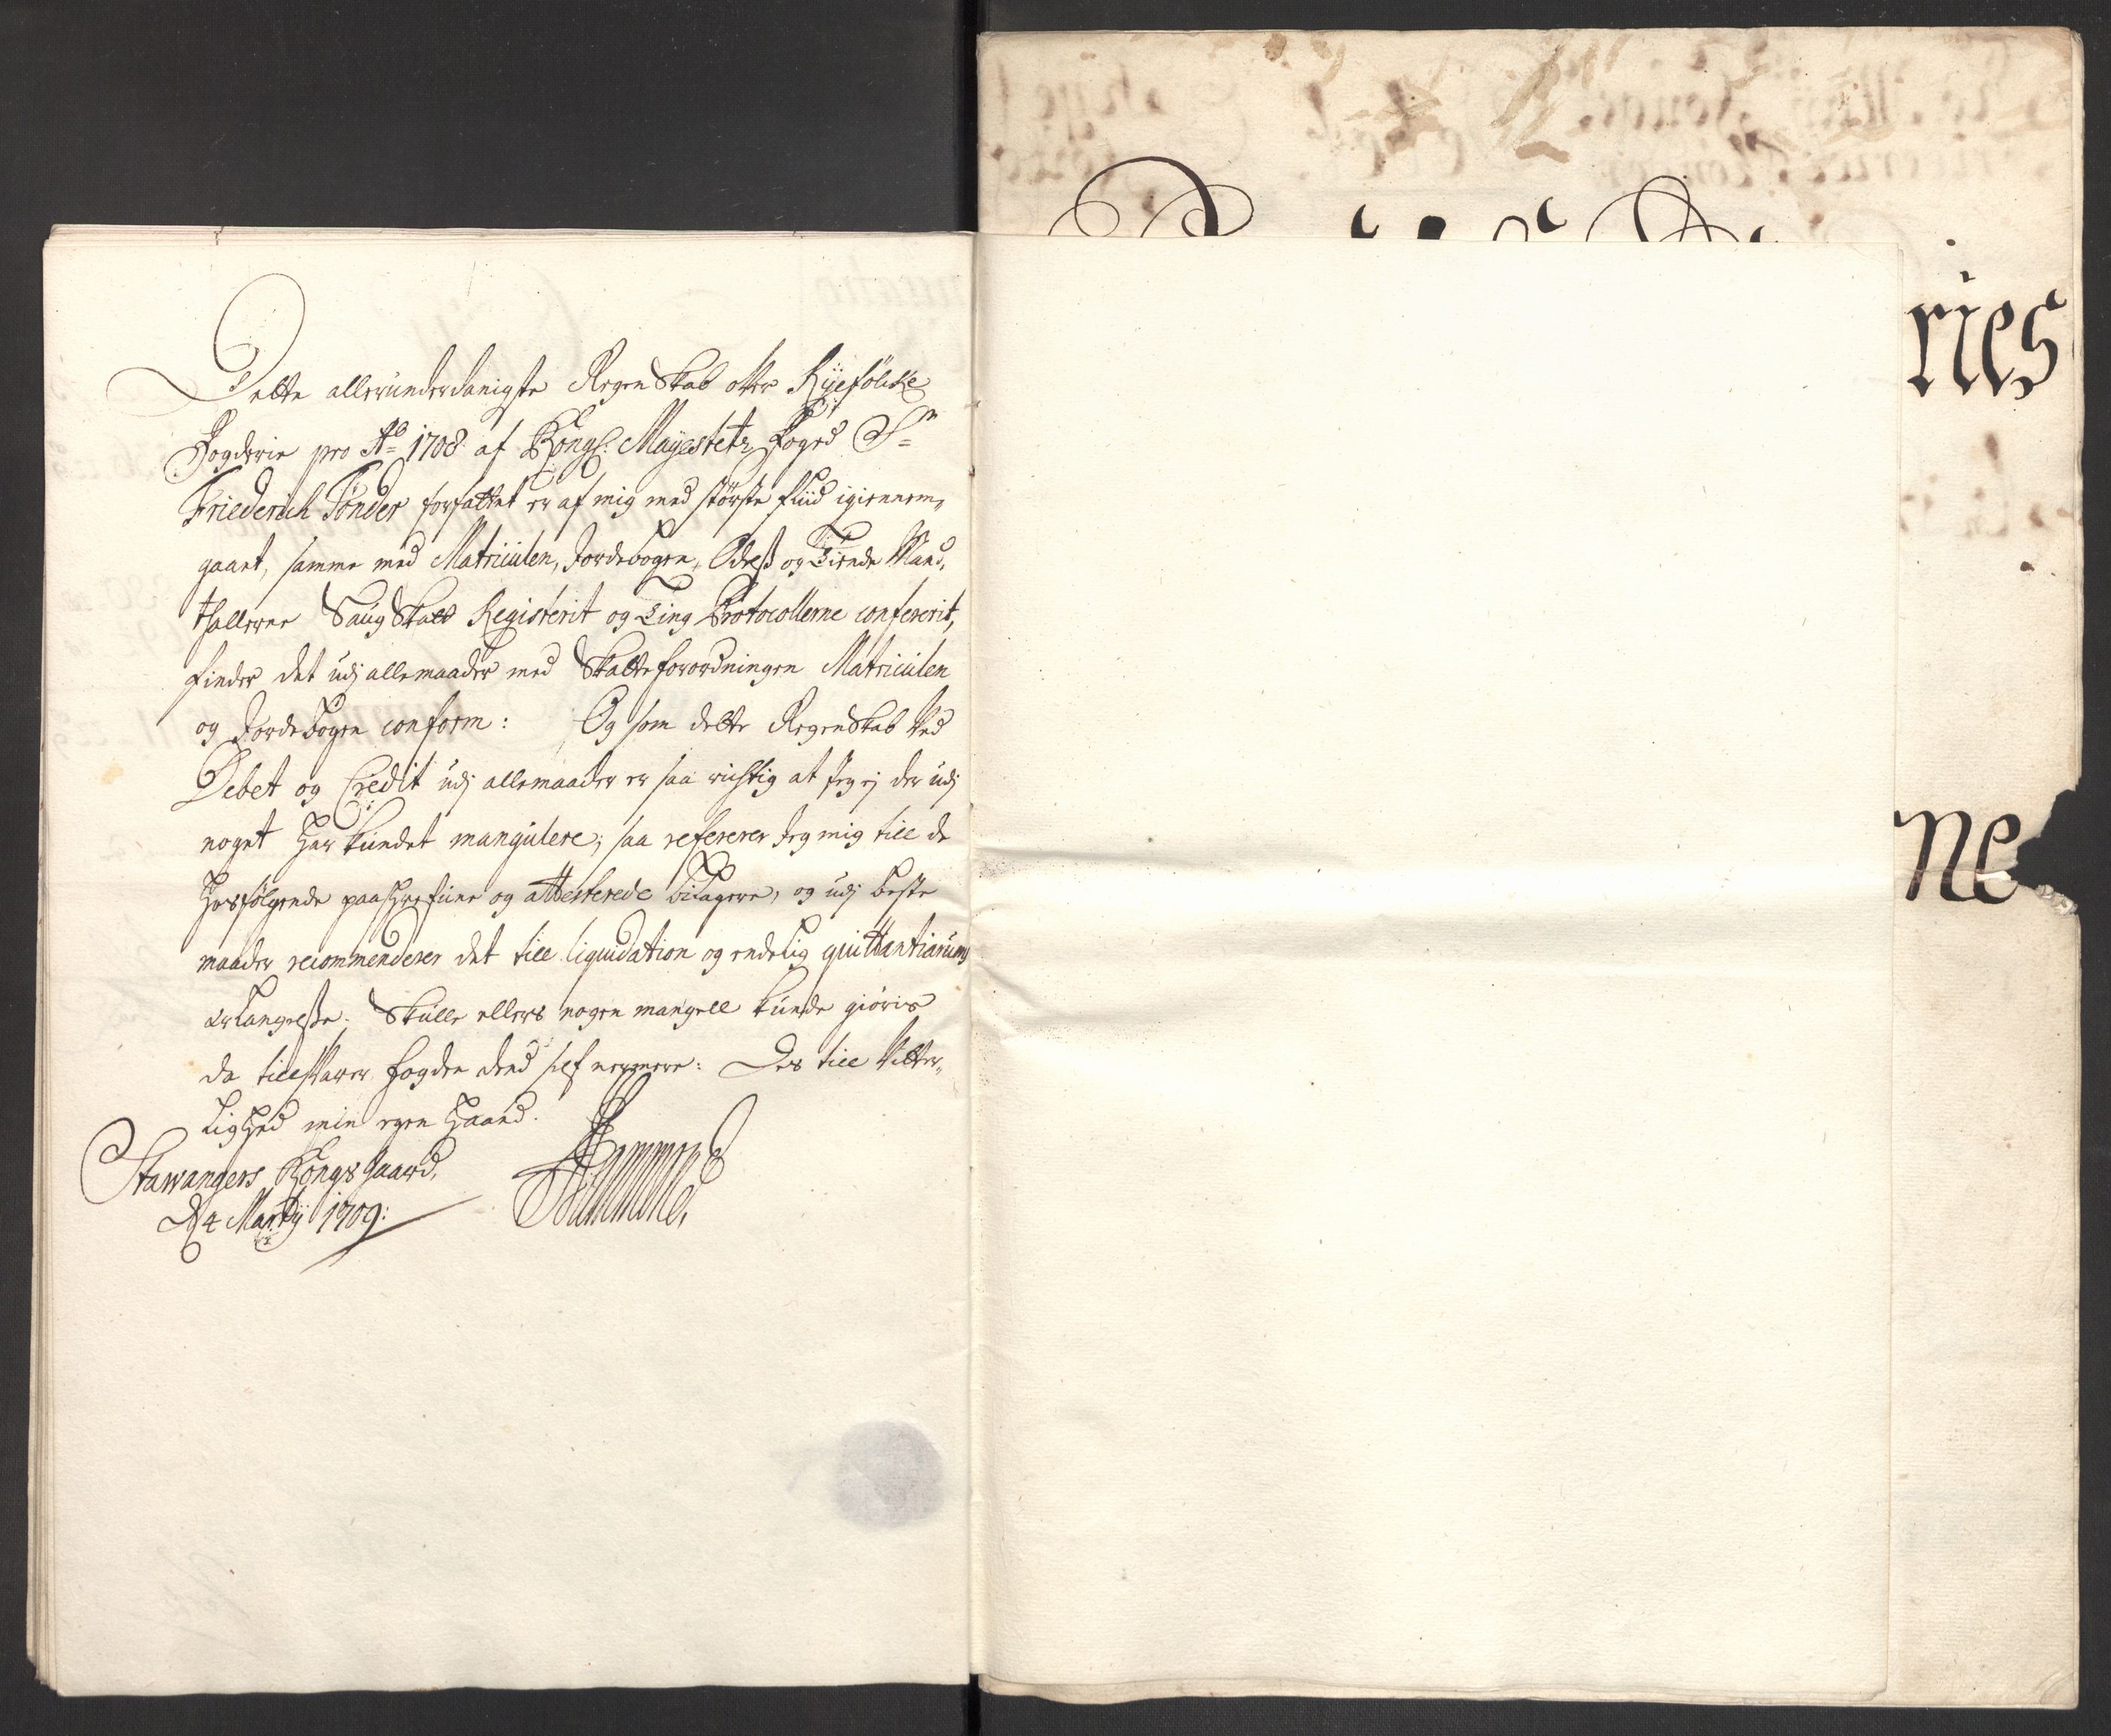 Dette allerunderdanigste Regenskab ofver Ryefölcke
Fogderie pro Ao 1708 af Kongl: Mayestets foged Sr
Friederich Tönder forfattet er af mig med störste fliid igiennem,,
gaaet, samme med Matriculen, Jordebogen, Odels og Tiende Mand,
thallerne Saug Skatt Registerit og Ting Protocollerne confererit,
finder det udj allemaader med Skatteforordningen Matriculen
og Jordebogen conform: Og som dette Regenskab ved
Debet og Credit udj allemaader er saa richtig at Jeg ej der udj
noget har kundet mangulere; saa refererer Jeg mig till de
hosfölgende paaschrefune og attesterede bilagere, og udj beste
maader recommenderer det till liquidation og endelig quittantiarum
erlangelsse. Skulle ellers nogen mangell kunde giöris
da tilsvarer fogden dend self nermere: Des till Vitter,,
lighed min egen haand.
Stawangers Kongsgaard,
D 4 Martij 1709:
ries
ne